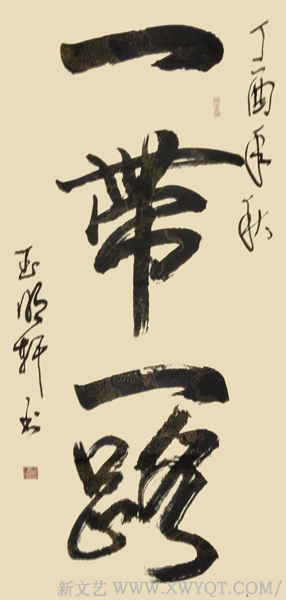 丁酉年秋
一帶一路
明軒书
新文艺 WWW.XWYQT.COM/